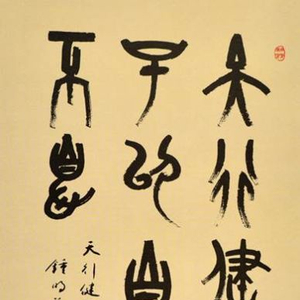 天行健
子以自
不息
天行健
鍾明